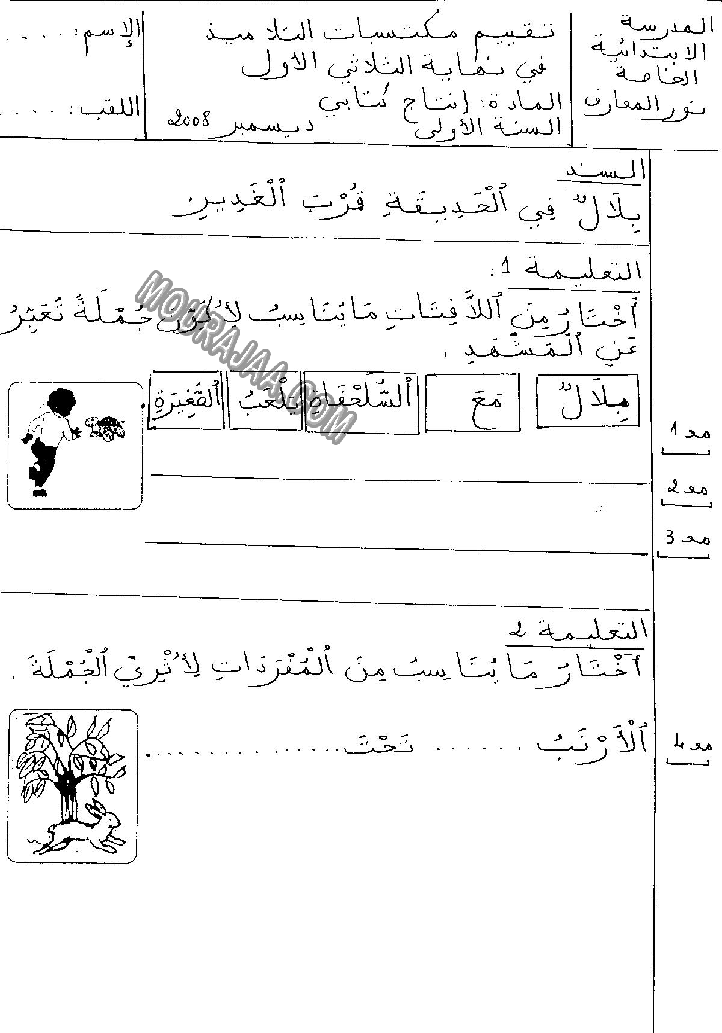 المدرسة
الابتدائية
الخاصة
نور المعارف
تقييم مكتسبات التلاميذ
في نهاية الثلاثي الأول
المادة: إنتاج كتابي
السنة الأولى ديسمبر 2008
الإسم: .....
اللقب: .....
السند
بِلَالٌ فِي ٱلْحَدِيقَةِ قُرْبَ ٱلْغَدِيرِ
التعليمة 1:
أَخْتَارُ مِنَ ٱللاَّفِتَاتِ مَا يُنَاسِبُ لِأُكَوِّنَ جُمْلَةً تُعَبِّرُ
عَنِ ٱلْمَشْهَدِ.
بِلَالٌ مَعَ ٱلسُّلَحْفَاةِ يَلْعَبُ ٱلصَّغِيرَةِ
MOURAJAA.COM
مع 1
مع 2
مع 3
التعليمة 2
أَخْتَارُ مَا يُنَاسِبُ مِنَ ٱلْمُفْرَدَاتِ لِأُثْرِيَ ٱلْجُمْلَةَ.
ٱلْأَرْنَبُ ...... تَحْتَ ..................
مع 4